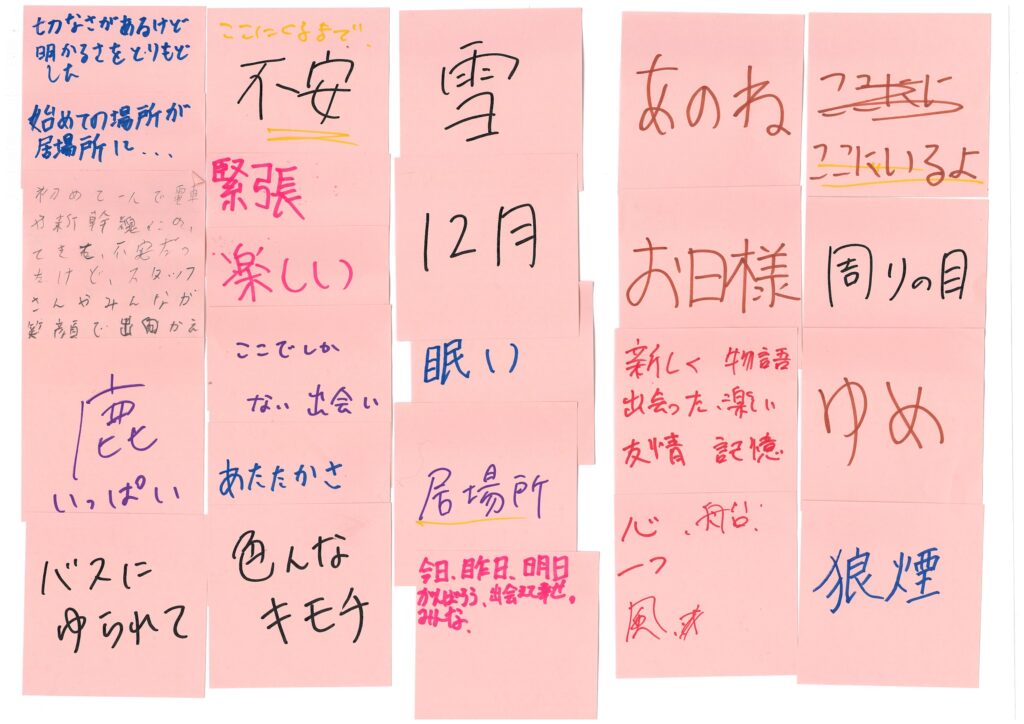 切なさがあるけど
明かるさをとりもど
した
始めての場所が
居場所に...
初めて一人で電車
や新幹線にの、
てきた、不安だっ
たけど、スタッフ
さんやみんなが
笑顔で出向かえ
鹿
いっぱい
バスに
ゆられて
ここにくるまで、
不安
緊張
楽しい
ここでしか
ない出会い
あたたかさ
色んな
キモチ
雪
12月
眠い
居場所
今日、昨日、明日
がんばろう、出会えて幸せ。
みんな、
あのね
お日様
新しく 物語
出会った、楽しい
友情 記憶
心、船、
一つ
風、
ここにいるよ
周りの目
ゆめ
狼煙